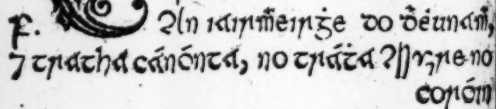 F. An iairm̃eirġe do ḋéunam̃,
⁊ tratha cánónta, no tráṫa Muire no
coróin